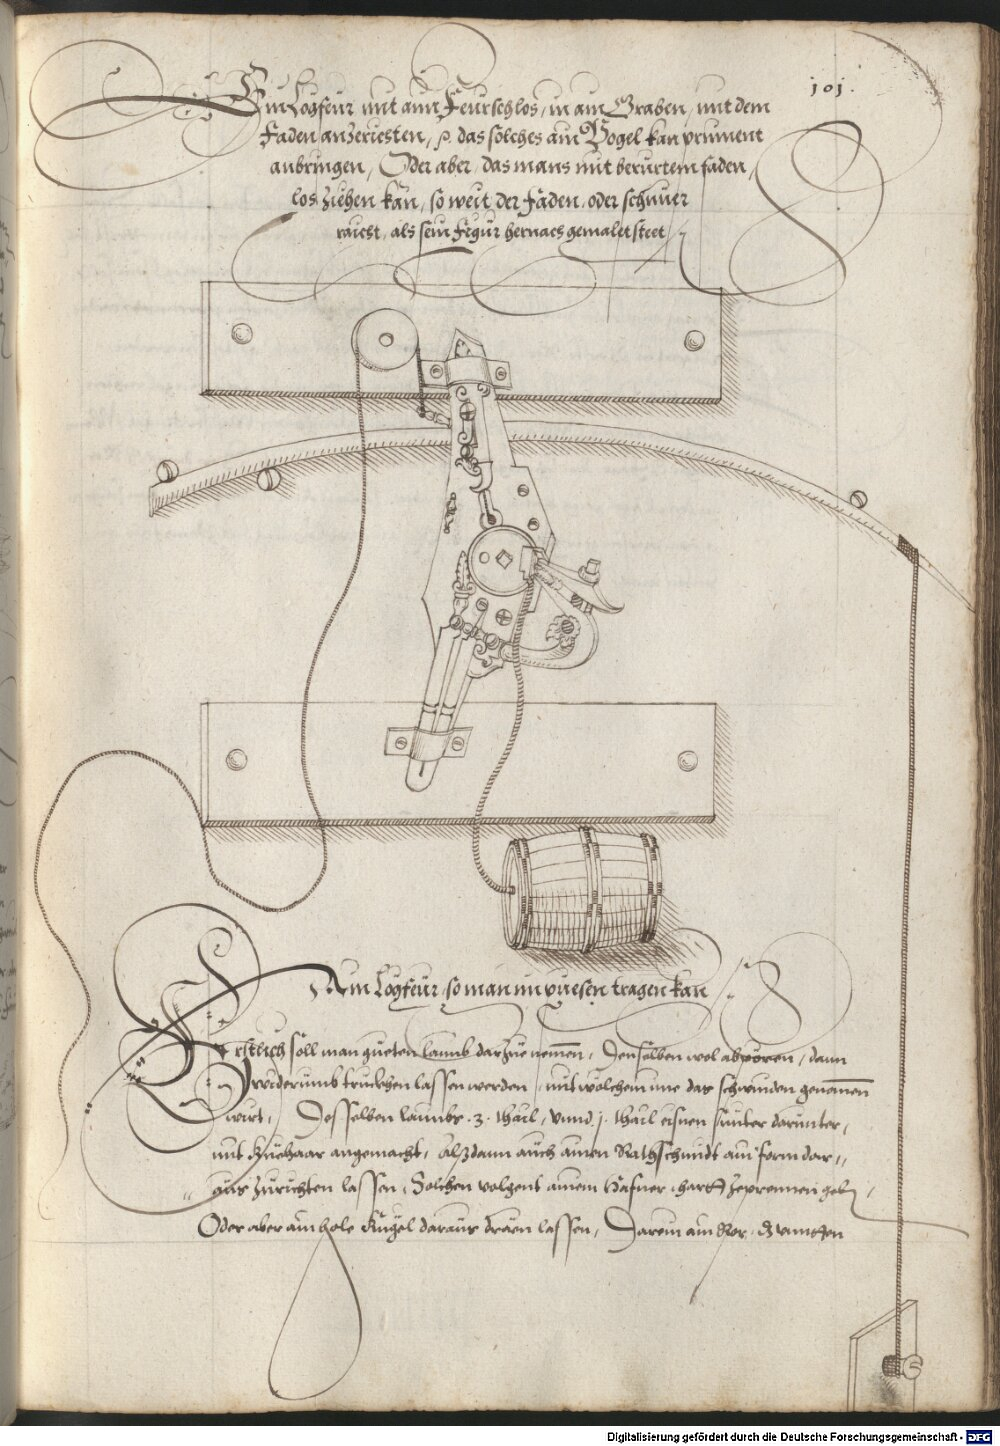 101.
Ein Logfeur mit aim Feurschlos, in aim Graben, mit dem
Faden anzeriesten, das solches aim Vogel kan
anbringen, Oder aber, das mans mit berürtem faden,
los ziehen kan, so weit der Faden, oder schnuer
raicht, als sein Figur hernach gemalet steet
Ain Logfeur, so man im tragen kan
Erstlich soll man gueten laimb darzue nemen, denselben wol abporen, dann
widerumb truckhen lassen werden, mit wölchem ime das schwinden genomen
wirt, Desselben laimbs .3. thail, vnnd .j. thail eisnen sinter darunter,
mit Küehaar angemacht, Alßdann auch ainen Rothschmidt ain form dar,,
,, aus zurichten lassen, Solchen volgent ainem Hafner hart zeprennen geben,
Oder aber ain hole Kugel daraus dräen lassen, Darein ain Ror
Digitalisierung gefördert durch die Deutsche Forschungsgemeinschaft - DFG